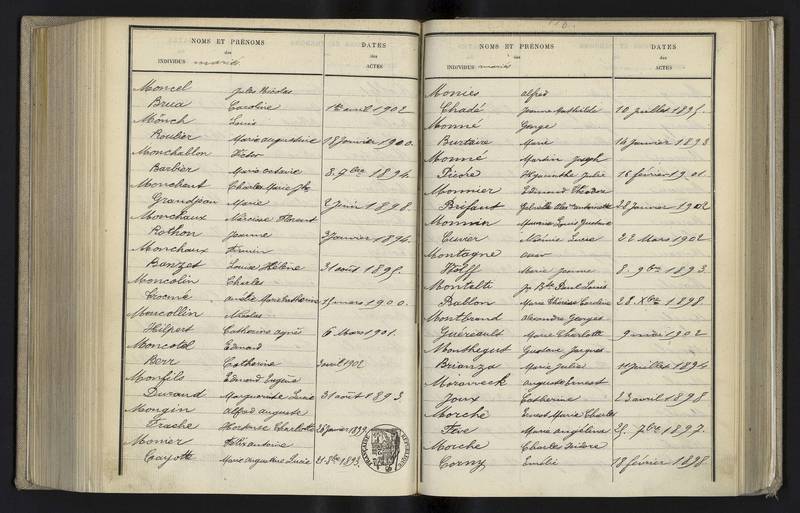 NOMS ET PRÉNOMS DATES
des des
INDIVIDUS mariés ACTES
Moncel Jules Nicolas
Brua Caroline 1er avril 1902
Mönch Louis
Roubier Marie Augustine 18 janvier 1900.
Monchablon Victor
Barbier Marie Octavie 8. 7bre 1894.
Monchaut Charles Marie Jh
Grandjean Marie 2 juin 1898.
Monchaux Florent
Rothon Jeanne 3 janvier 1894.
Monchaux Firmin
Banzet Louise Hélène 31 août 1895.
Moncolin Charles
Crocmé Marie Catherine mars 1900.
Moncollin Nicolas
Hilpert Catherine Agnès 6 Mars 1901.
Moncotel Edmond
Berr Catherine 3 avril 1902
Monfils Edmond Eugène
Durand Marguerite Lucie 31 août 1893
Mongin Alfred Auguste
Frache Hortense Charlotte 26 janvier 1899.
Monier antoine
Gayott Marie Augustine Lucie 21. 8bre 1893.
NOMS ET PRÉNOMS DATES
des des
INDIVIDUS mariés ACTES
Monies Alfred
Chadé Jeanne Mathilde 10 juillet 1895.
Monné George
Burtaire Marie 14 janvier 1893
Monné Martin Joseph
Picoré Hyacinthe Julie 16 février 1901.
Monnier Edmond Théodore
Brifaut Gabrielle antoinette 28 janvier 1902
Monnin Maurice Louis Gustave
Cuvier Lucie 22 Mars 1902
Montagne
Wolff Marie Jeanne 8. 9bre 1893.
Jn Bte Paul Louis
Bablon Marie Thérèse Caroline 28. Xbre 1898.
Montbrand Alexandre Georges
Guéreault Marie Charlotte 9 mai 1902
Gustave Jacques
Brianza Marie Julie juillet 1894
Auguste Ernest
Joux Catherine 23 avril 1898
Morche Ernest Marie Charles
Feve Marie Angelina 25. 7bre 1897.
Morche Charles Isidore
Corny Emélie 18 février 1898.